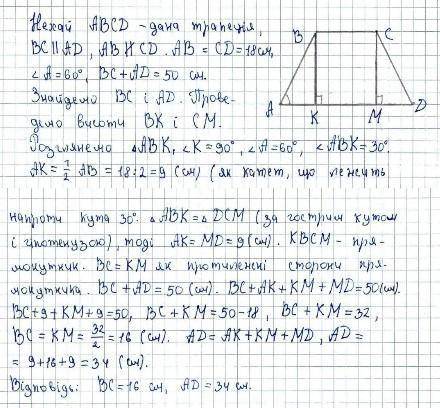 Нехай ABCD - дана трапеція,
BC ∥ AD, AB ∦ CD. AB = CD = 18 см,
∠A = 60°, BC + AD = 50 см.
Знайдемо BC і AD. Прове-
демо висоти BK і CM.
Розглянемо △ABK, ∠K = 90°, ∠A = 60°, ∠ABK = 30°.
AK = 1/2 AB = 18 : 2 = 9 (см) (як катет, що лежить
B C
A K M D
напроти кута 30°. △ABK = △DCM (за гострим кутом
і гіпотенузою), тоді AK = MD = 9 (см). KBCM - пря-
мокутник. BC = KM як протилежні сторони пря-
мокутника. BC + AD = 50 (см). BC + AK + KM + MD = 50 (см).
BC + 9 + KM + 9 = 50, BC + KM = 50 - 18, BC + KM = 32,
BC = KM = 32/2 = 16 (см). AD = AK + KM + MD, AD =
= 9 + 16 + 9 = 34 (см).
Відповідь: BC = 16 см, AD = 34 см.